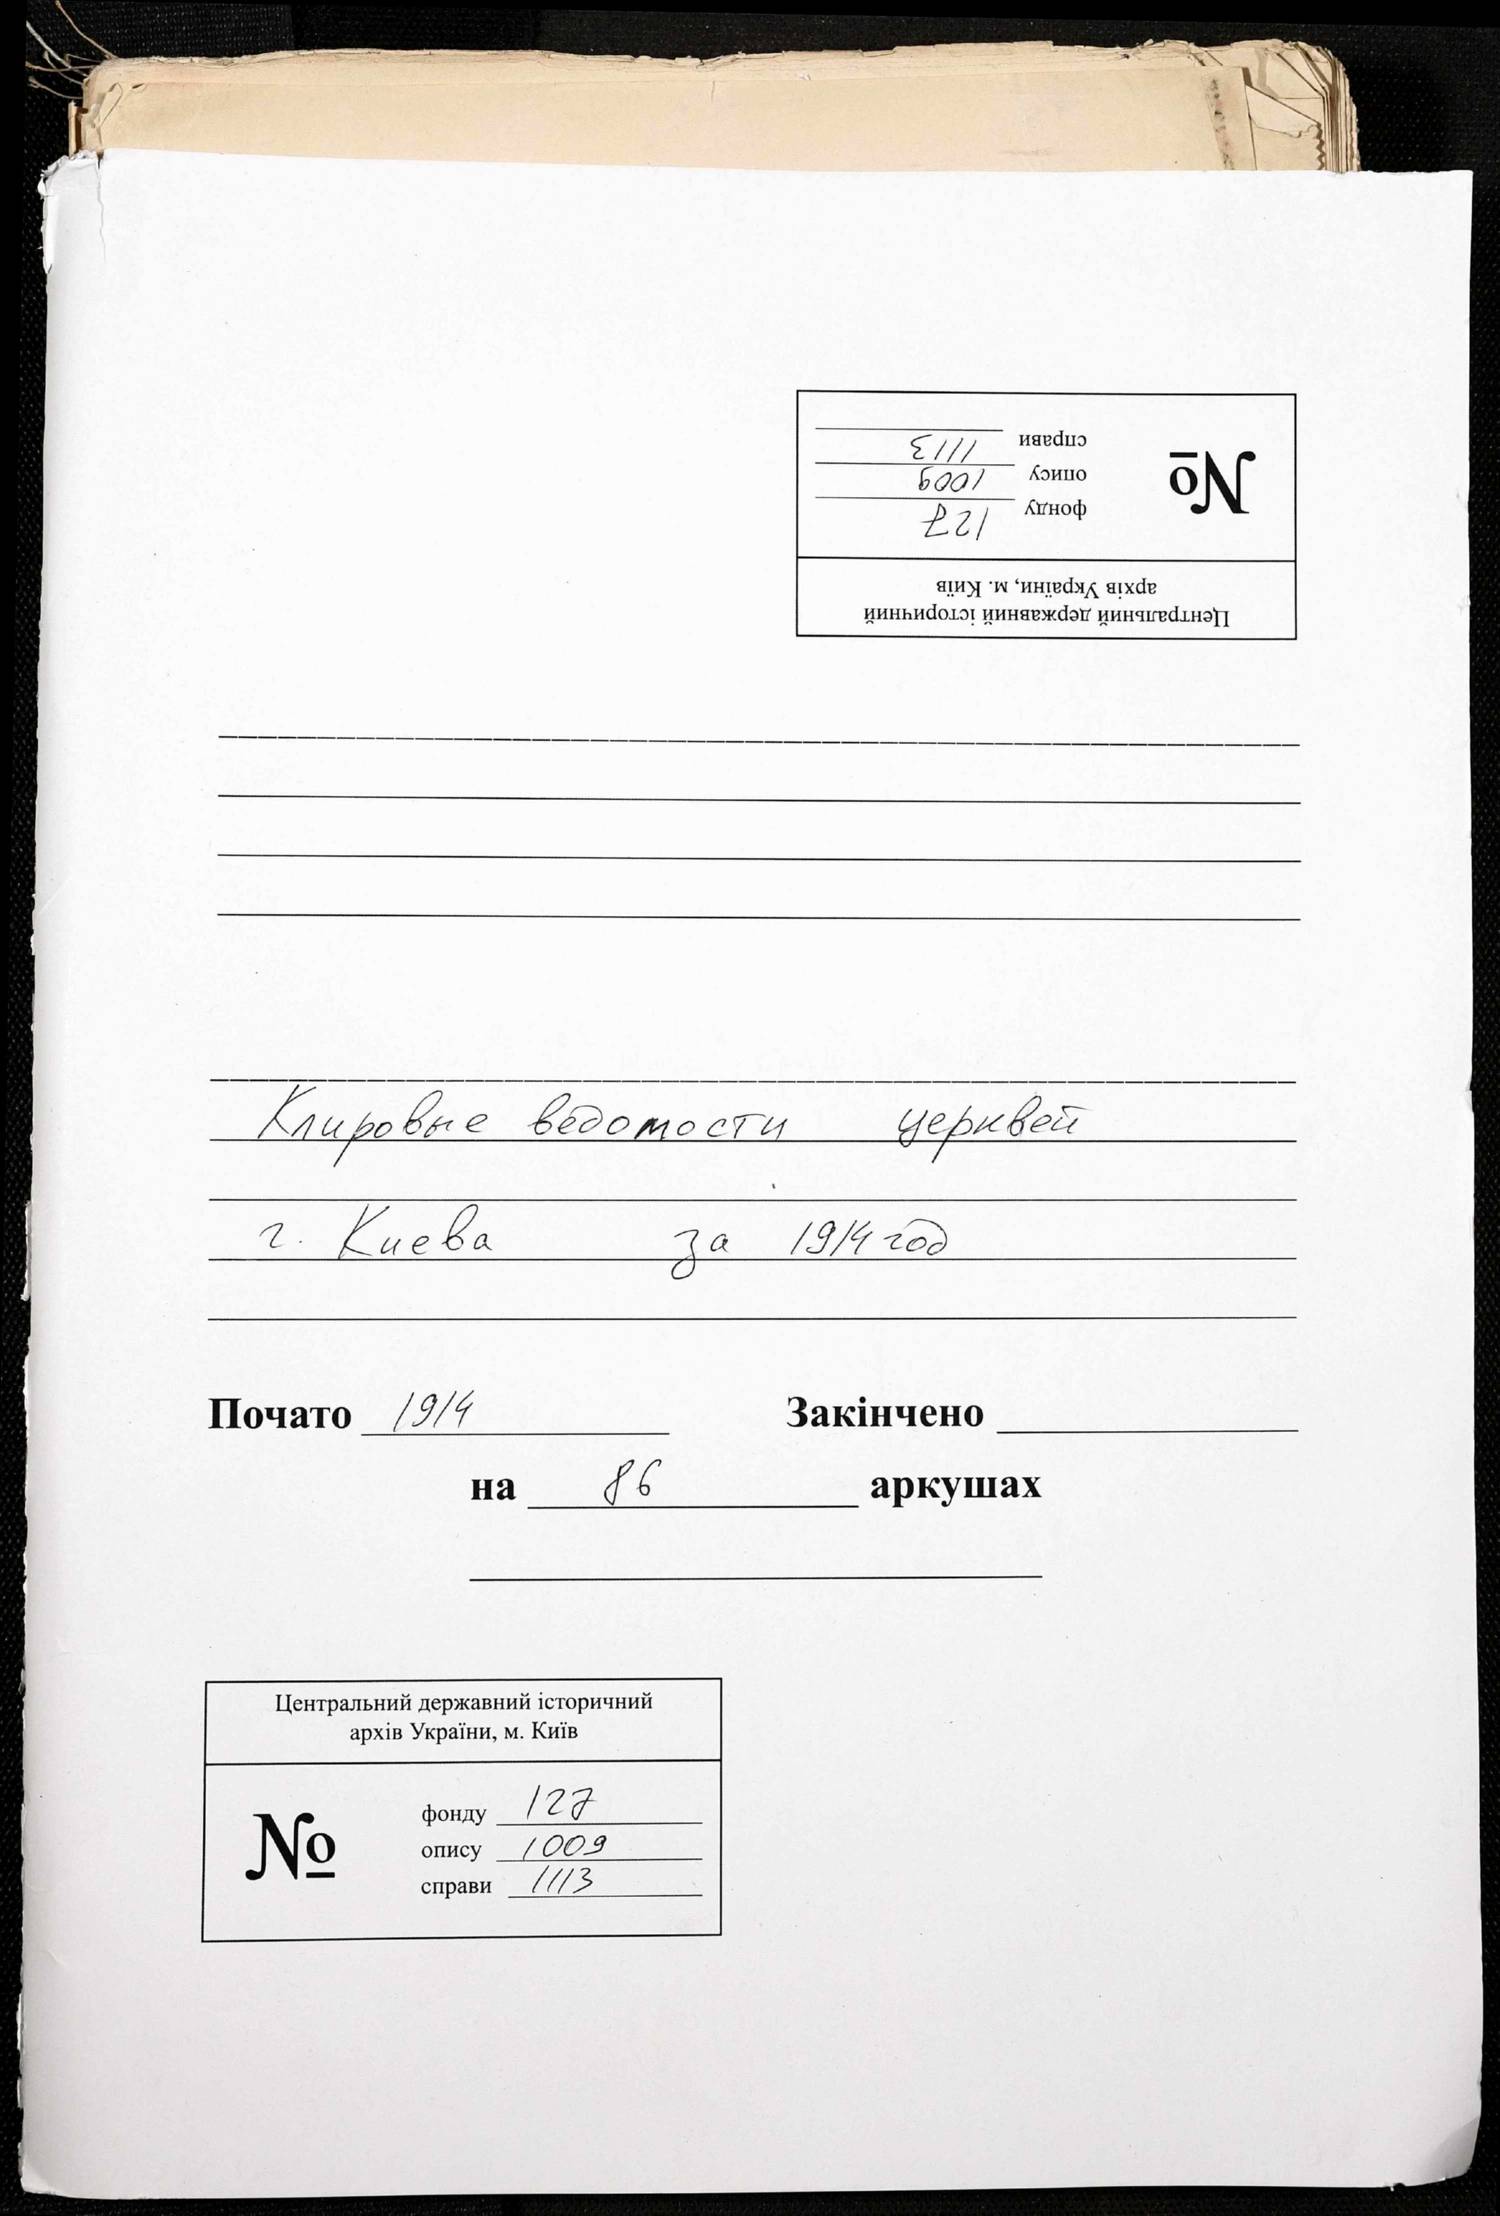 справи 1113
опису 1009
фонду 127
№
Центральний державний історичний
архів України, м. Київ
Клировые ведомости церквей
г. Киева за 1914 год
Почато 1914 Закінчено
на 86 аркушах
Центральний державний історичний
архів України, м. Київ
№
фонду 127
опису 1009
справи 1113